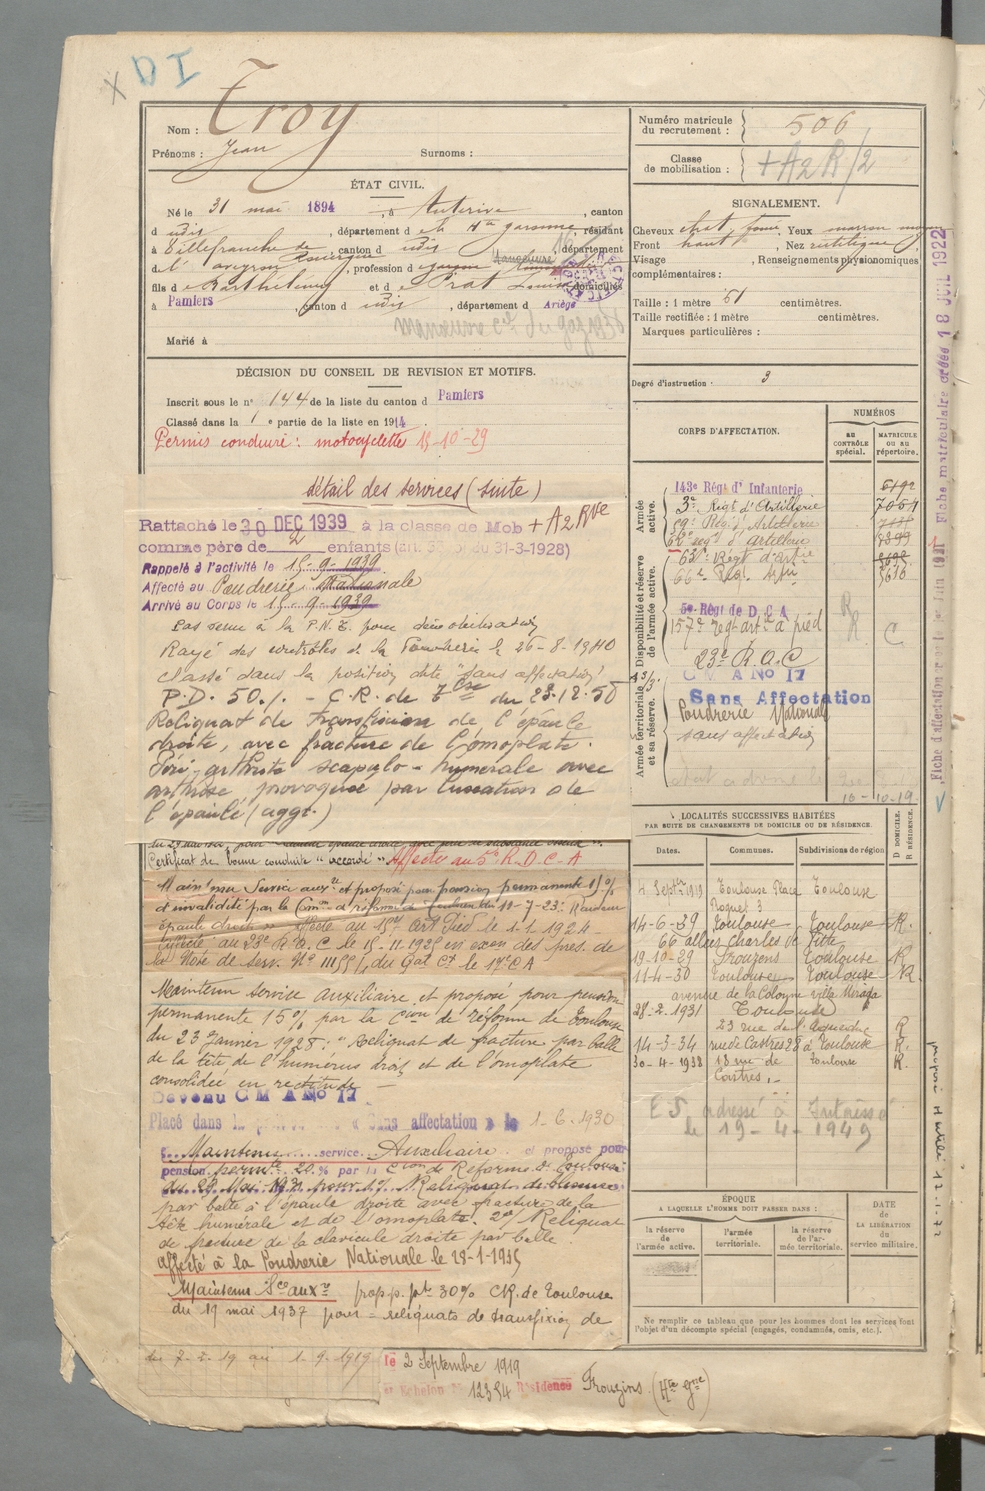 X D I
Nom : Troy
Prénoms : Jean Surnoms :
ÉTAT CIVIL.
Né le 31 mai 1894, à Auterive, canton
d udis, département d e la Hte garonne, résidant
à Villefranche de Rouergue, canton d udis, département
de l'aveyron, profession d garçon
fils d e Barthélemy et d e Prat Louise domiciliés
à Pamiers, canton d udis, département d Ariège
manoeuvre du gaz 1936
Marié à
DÉCISION DU CONSEIL DE REVISION ET MOTIFS.
Inscrit sous le n° 144 de la liste du canton d Pamiers
Classé dans la 1 e partie de la liste en 1914
Permis conduire : motocyclette 15-10-29
détail des services (suite)
Rattaché le 30 DEC 1939 à la classe de Mob + A2 Rve
comme père de 2 enfants (art. du 31-3-1928)
Rappelé à l'activité le 15-9-1939
Affecté au Poudrerie Nationale
Arrivé au Corps le 15-9-1939
Pas venu à la P.N.T. pour démobilisation
Rayé des contrôles de la Poudrerie le 26-8-1940
classé dans la position dite "sans affectation"
P.D. 50% - C.R. de du 23.12.50
Reliquat de transfixion de l'épaule
droite, avec fracture de l'omoplate.
Péri-arthrite scapulo-humérale avec
arthrose, provoquée par luxation de
l'épaule (aggr.)
Certificat de bonne conduite "accordé" Affecté au 5e R.D.C.A
Maintenu Service auxre et proposé pour pension permanente 15%
d'invalidité par la Comon de réforme de Toulouse du 19-7-23: Raideur
épaule droite. Affecté au 157 art Pied le 1-1-1924
Affecté au 23e R.A.C le 15-11-1925 en exon des pres. de
la Note de Serv. No 11155/4 du Gal Ct le 17e C A
Maintenu service auxiliaire et proposé pour pension
permanente 15% par la Cion de réforme de Toulouse
du 23 Janvier 1928 : "Reliquat de fracture par balle
de la tête de l'humérus droit et de l'omoplate
consolidée en rectitude -
Devenu C M A No 17
Placé dans la position « Sans affectation » le 1-6-1930
Maintenu service Auxiliaire et proposé pour
pension permte 20% par la Cion de Réforme de Toulouse
par balle à l'épaule droite avec fracture de la
tête humérale et de l'omoplate. 2o/ Reliquat
de fracture de la clavicule droite par balle
affecté à la Poudrerie Nationale le 28-1-1935
Maintenu Sce auxre prop. p. pt 30% CR. de Toulouse
du 19 mai 1937 pour = reliquats de transfixion de
du 7-2-19 au 1-9-1919
le 2 Septembre 1919
Echelon No 12354 Résidence Frouzins (Hte Gne)
Numéro matricule du recrutement : 506
Classe de mobilisation : + A2 R/2
SIGNALEMENT.
Cheveux chat. foncé, Yeux marron
Front haut, Nez rectiligne
Visage , Renseignements physionomiques
complémentaires :
Taille : 1 mètre 61 centimètres.
Taille rectifiée : 1 mètre centimètres.
Marques particulières :
Degré d'instruction : 3
CORPS D'AFFECTATION.
NUMÉROS
AU CONTRÔLE spécial.
MATRICULE OU AU répertoire.
Armée active.
143e Régt d'Infanterie
3e Régt d'Artillerie 7054
59e Régt d'Artillerie
62e regt d'artillerie
Disponibilité et réserve de l'armée active.
63e Régt d'Artie
66e Rég. Artie
5e Régt de D C A
157e régt artie à pied R C
23e R.A.C
Armée territoriale et sa réserve.
C M A No 17
Sans Affectation
Poudrerie Nationale
sans affectation
16-10-19
LOCALITÉS SUCCESSIVES HABITÉES
PAR SUITE DE CHANGEMENTS DE DOMICILE OU DE RÉSIDENCE.
Dates. Communes. Subdivisions de région D DOMICILE. R RÉSIDENCE.
4 Septre 1919 Toulouse Place Roguet 3 Toulouse
14-6-29 Toulouse Toulouse R.
66 allées Charles de Fitte
19-10-29 Frouzins Toulouse R
11-4-30 Toulouse Toulouse R
avenue de la Cologne villa
28-2-1931 Toulouse
23 rue de l'Aqueduc R
14-3-34 rue de Castres 28 à Toulouse R.
30-4-1938 18 rue de Castres Toulouse R.
ES adressé à Intéressé
le 19-4-1949
ÉPOQUE
A LAQUELLE L'HOMME DOIT PASSER DANS :
la réserve de l'armée active.
l'armée territoriale.
la réserve de l'armée territoriale.
DATE de LA LIBÉRATION du service militaire.
Ne remplir ce tableau que pour les hommes dont les services font
l'objet d'un décompte spécial (engagés, condamnés, omis, etc.).
Fiche matriculaire créée 18 JUIL 1922